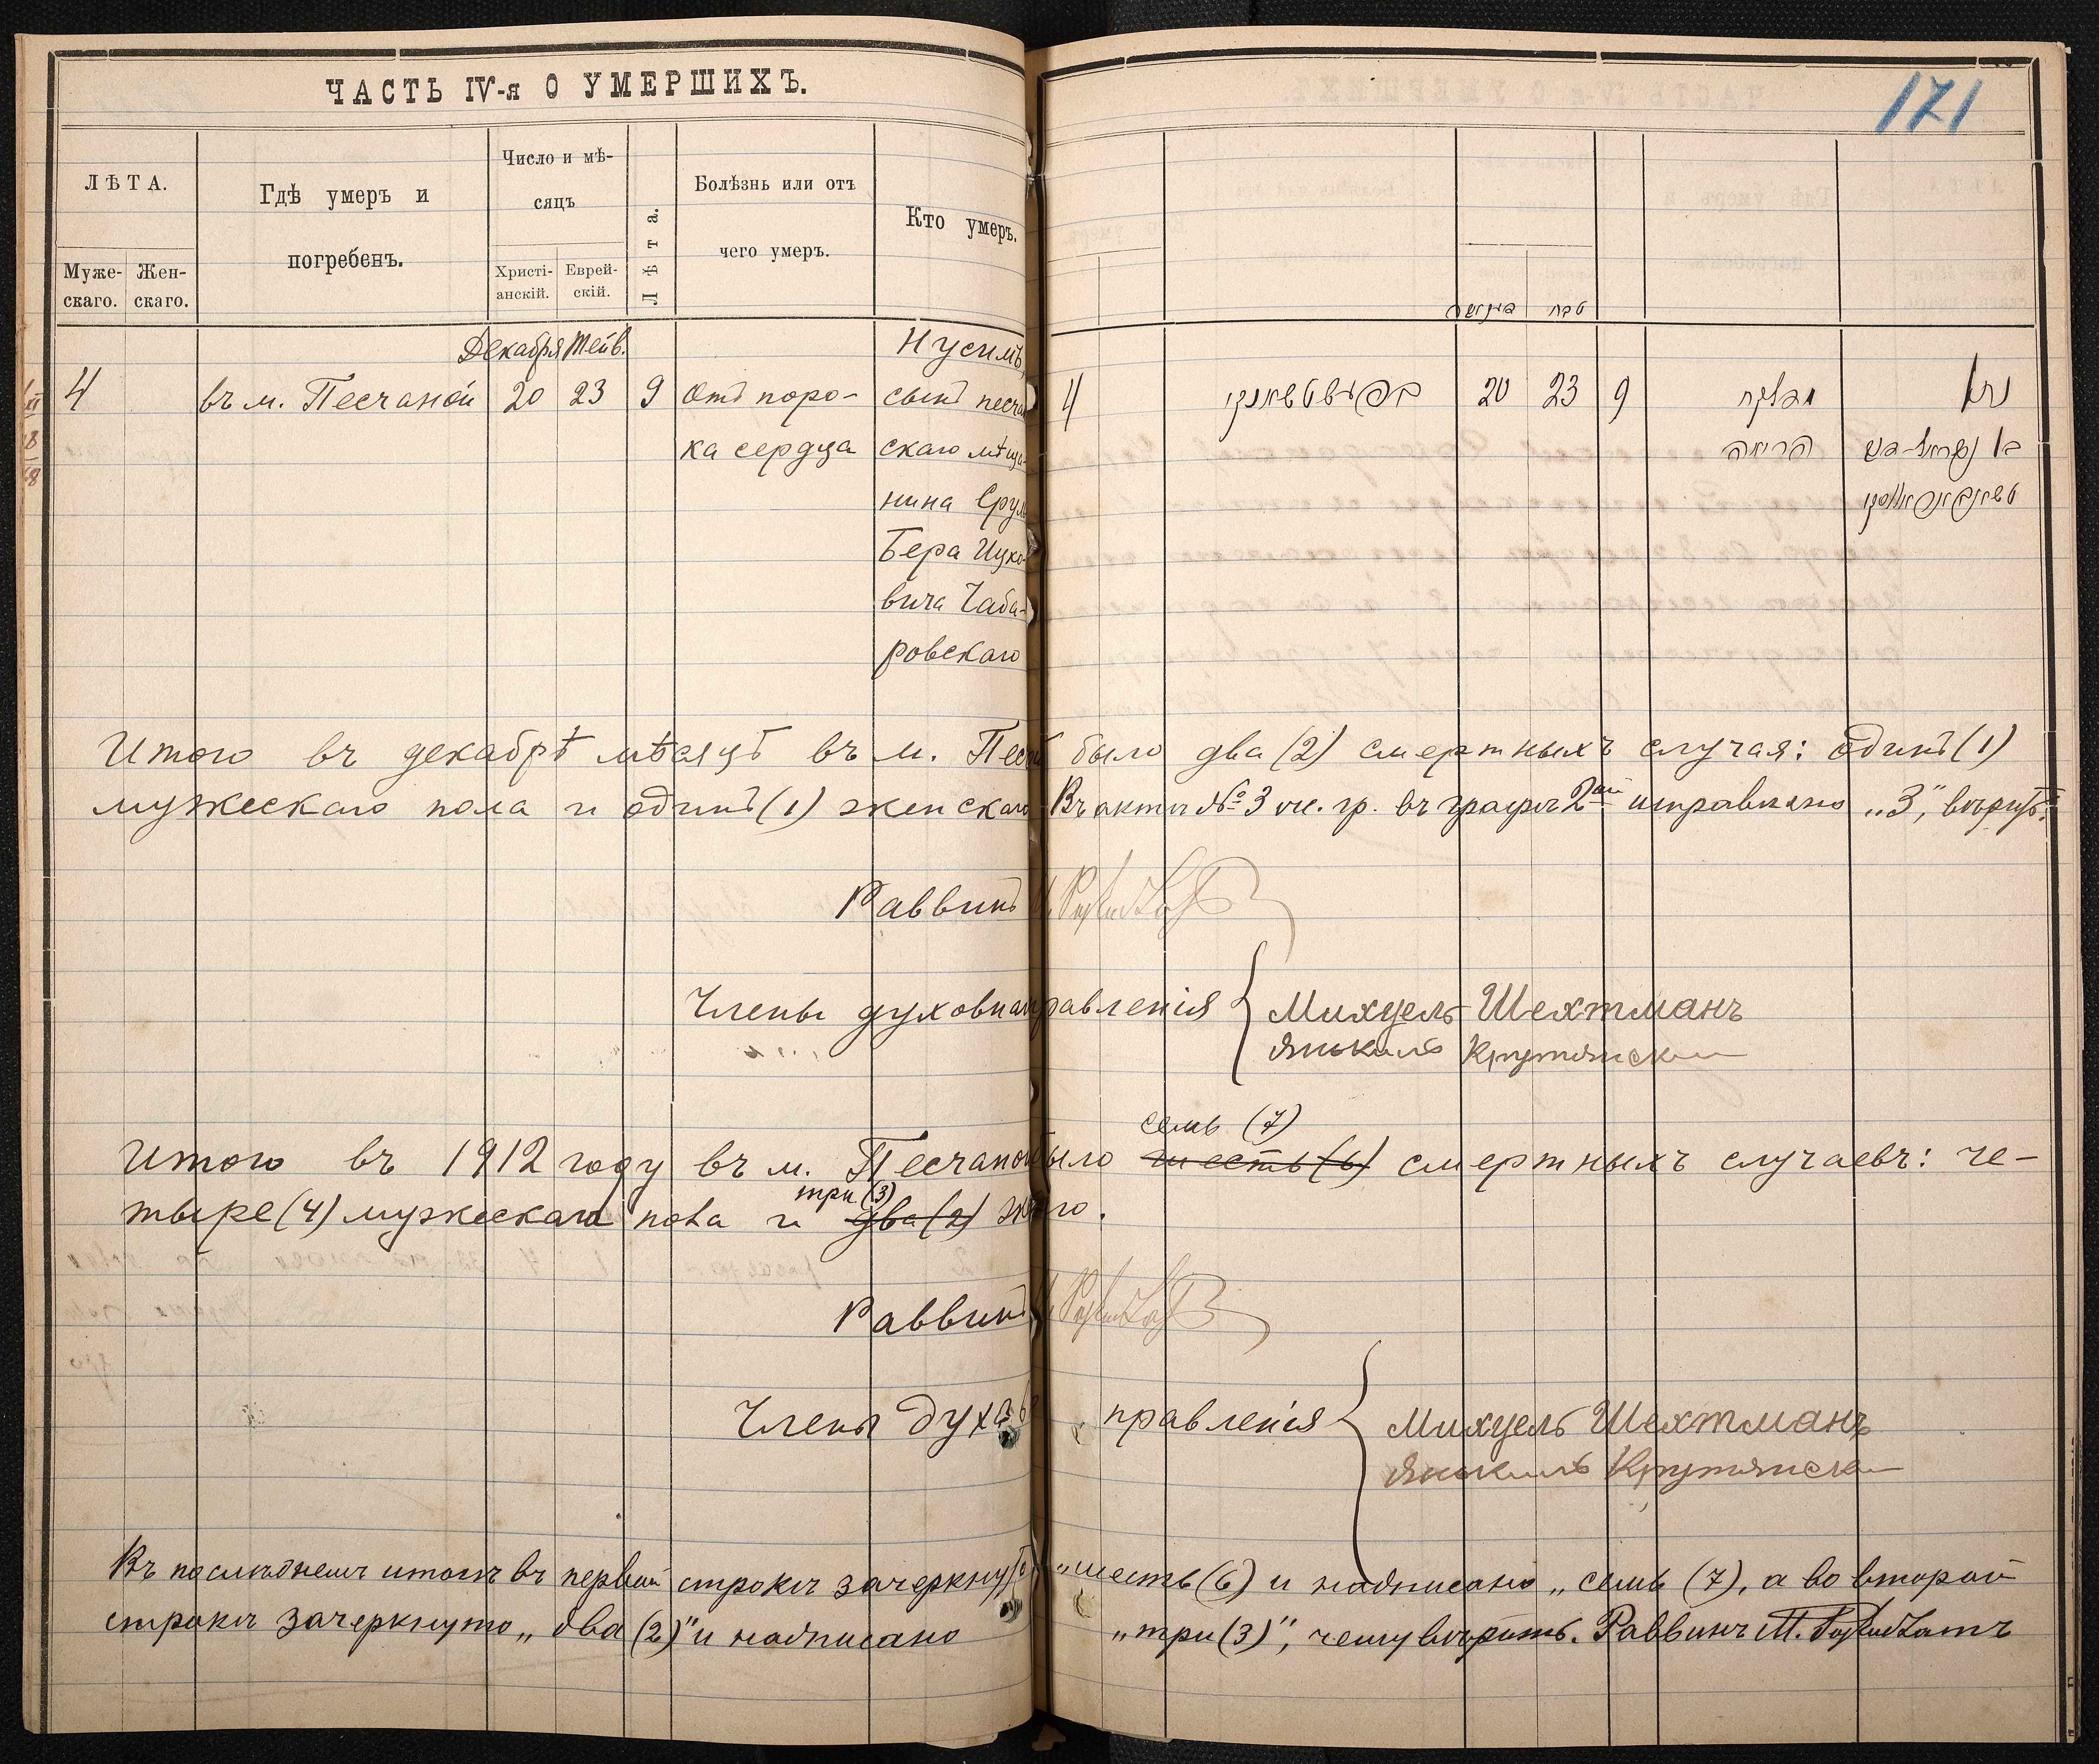 ЧАСТЬ IV-я О УМЕРШИХЪ.
171
ЛѢТА.
Муже-
скаго.
Жен-
скаго.
Гдѣ умеръ и
погребенъ.
Число и мѣ-
сяцъ
Христі-
анскій.
Еврей-
скій.
Лѣта.
Болѣзнь или отъ
чего умеръ.
Кто умеръ.
טבת
Декабря Тейв.
4 въ м. Песчаной 20 23 9 Отъ поро-
ка сердца
Нусимъ,
сынъ песчан
скаго мѣща-
нина Срул
Бера Ицко-
вича Чаба-
ровскаго
4 20 23 9
Итого въ декабрѣ мѣсяцѣ въ м. Песч было два (2) смертныхъ случая: одинъ (1)
мужескаго пола и одинъ (1) женскаго Въ актѣ № 3 въ графѣ 2ой исправлено „3",
Раввинъ
Члены духовна правленія Михуель Шехтманъ
Янкиль
семь (7)
Итого въ 1912 году въ м. Песчаной было шесть (6) смертныхъ случаевъ: че-
три (3)
тыре (4) мужескаго пола и два (2) го.
Раввинъ
Члены духов правленія Михуель Шехтманъ
Янкиль
Въ послѣднемъ итогѣ въ первой строкѣ зачеркнуто „шесть (6) и надписано „семь (7), а во второй
строкѣ зачеркнуто „два (2)" и надписано „три (3)", чему вѣрить. Раввинъ